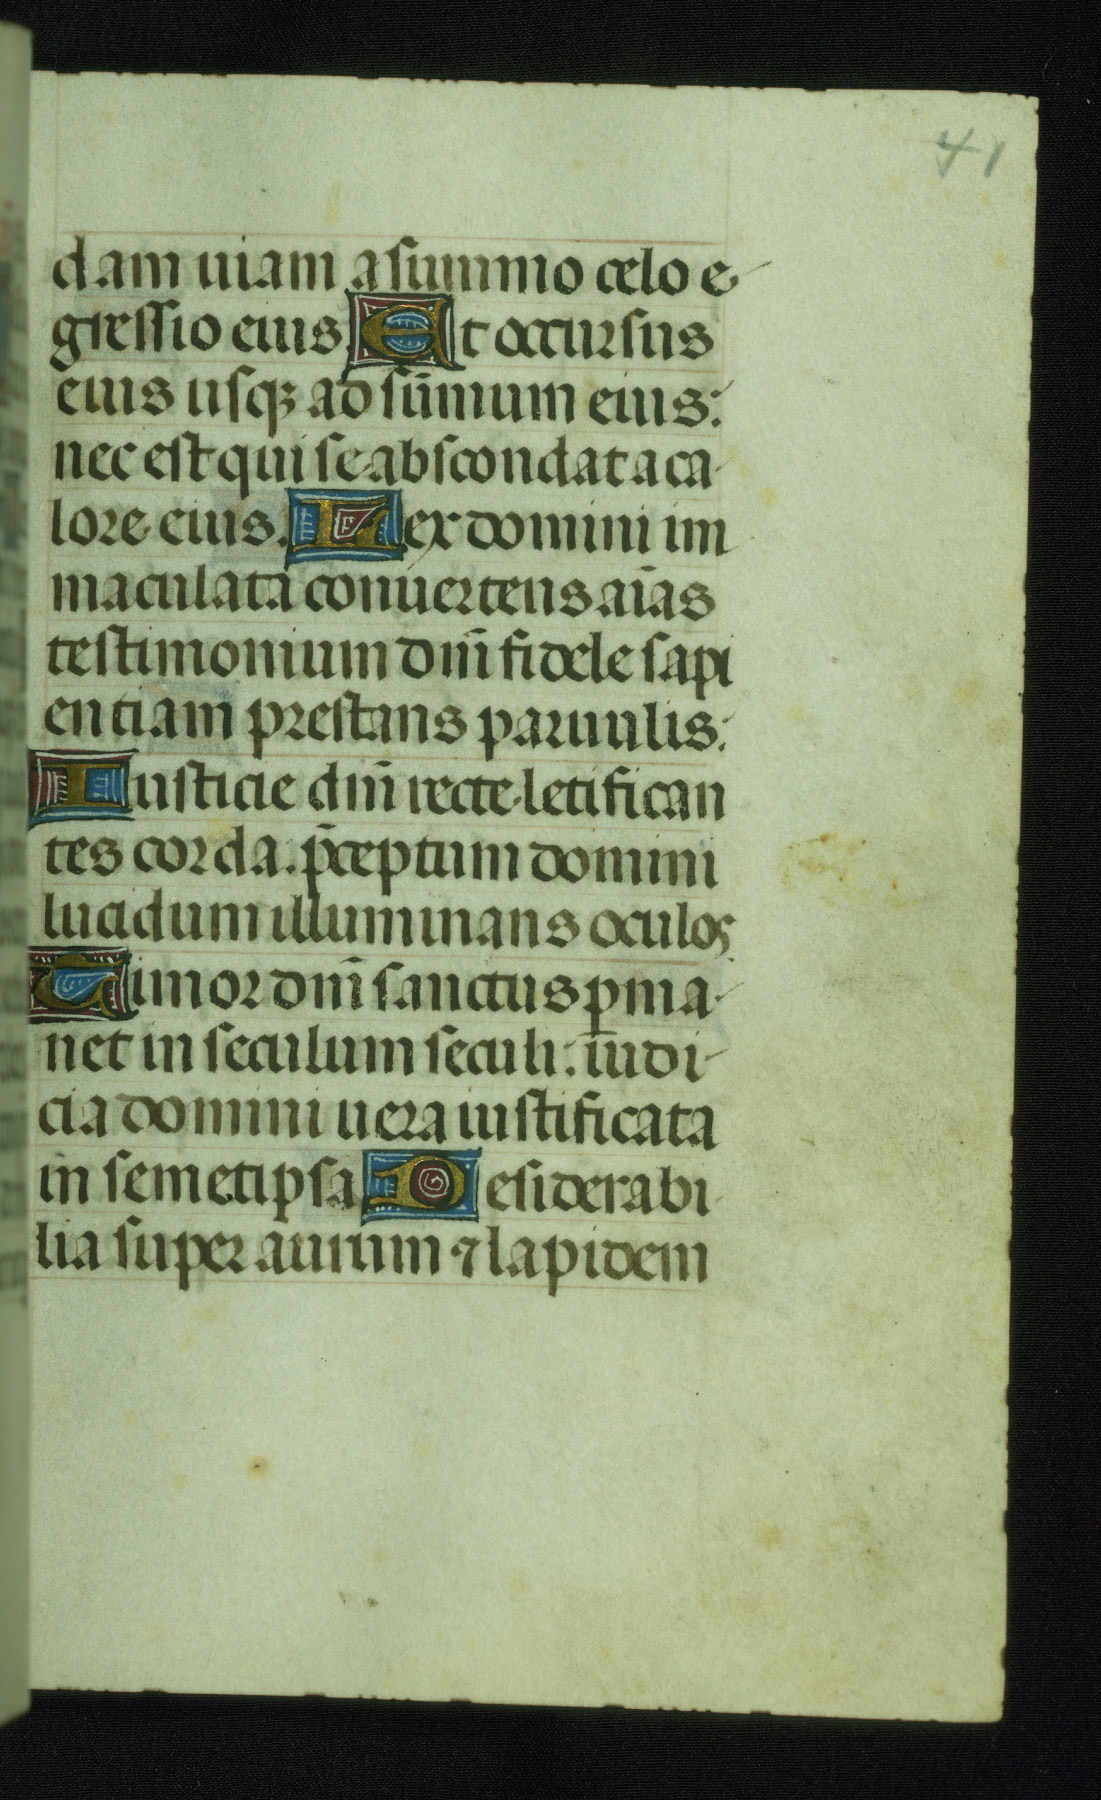 41
dam uiam a summo celo e
gressio eius Et occursus
eius usqꝫ ad sūmum eius:
nec est qui se abscondat a ca
lore eius. Lex domini im
maculata conuertens aīas
testimonium dn̄i fidele sapi
entiam prestans paruulis:
Iusticie dn̄i recte letifican
tes corda. p̄ceptum domini
lucidum illuminans oculos
Timor dn̄i sanctus ꝑma
net in seculum seculi: iudi
cia domini uera iustificata
in semetipsa Desiderabi
lia super aurum ⁊ lapidem